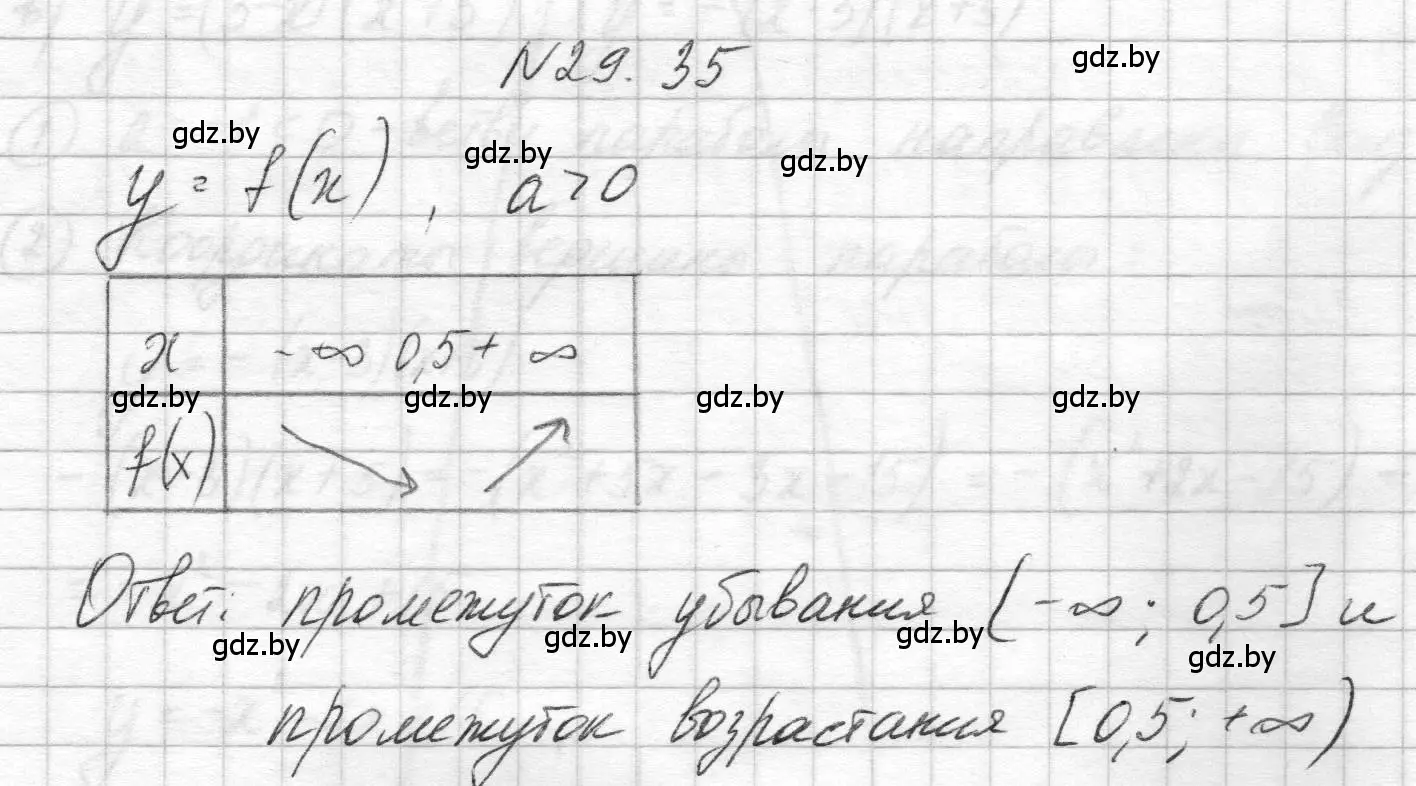 N29.35
gdz.by
gdz.by
gdz.by
gdz.by
y = f(x), a > 0
x -∞ 0,5 + ∞
gdz.by
gdz.by
gdz.by
gdz.by
f(x)
Ответ: промежуток убывания (-∞; 0,5] и
gdz.by
gdz.by
gdz.by
gdz.by
промежуток возрастания [0,5; +∞)